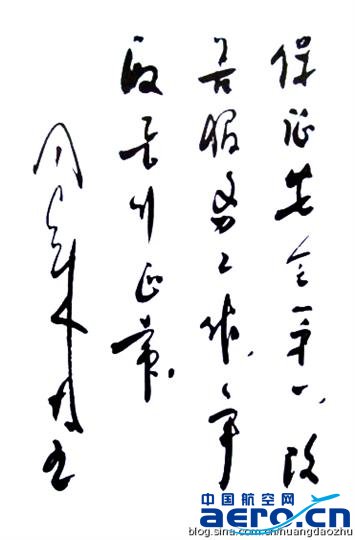 保证安全第一、改
善服务工作、争
取飞行正常。
周恩来
中国航空网
aero.cn
blog.sina.com.cn/huangdaozhu